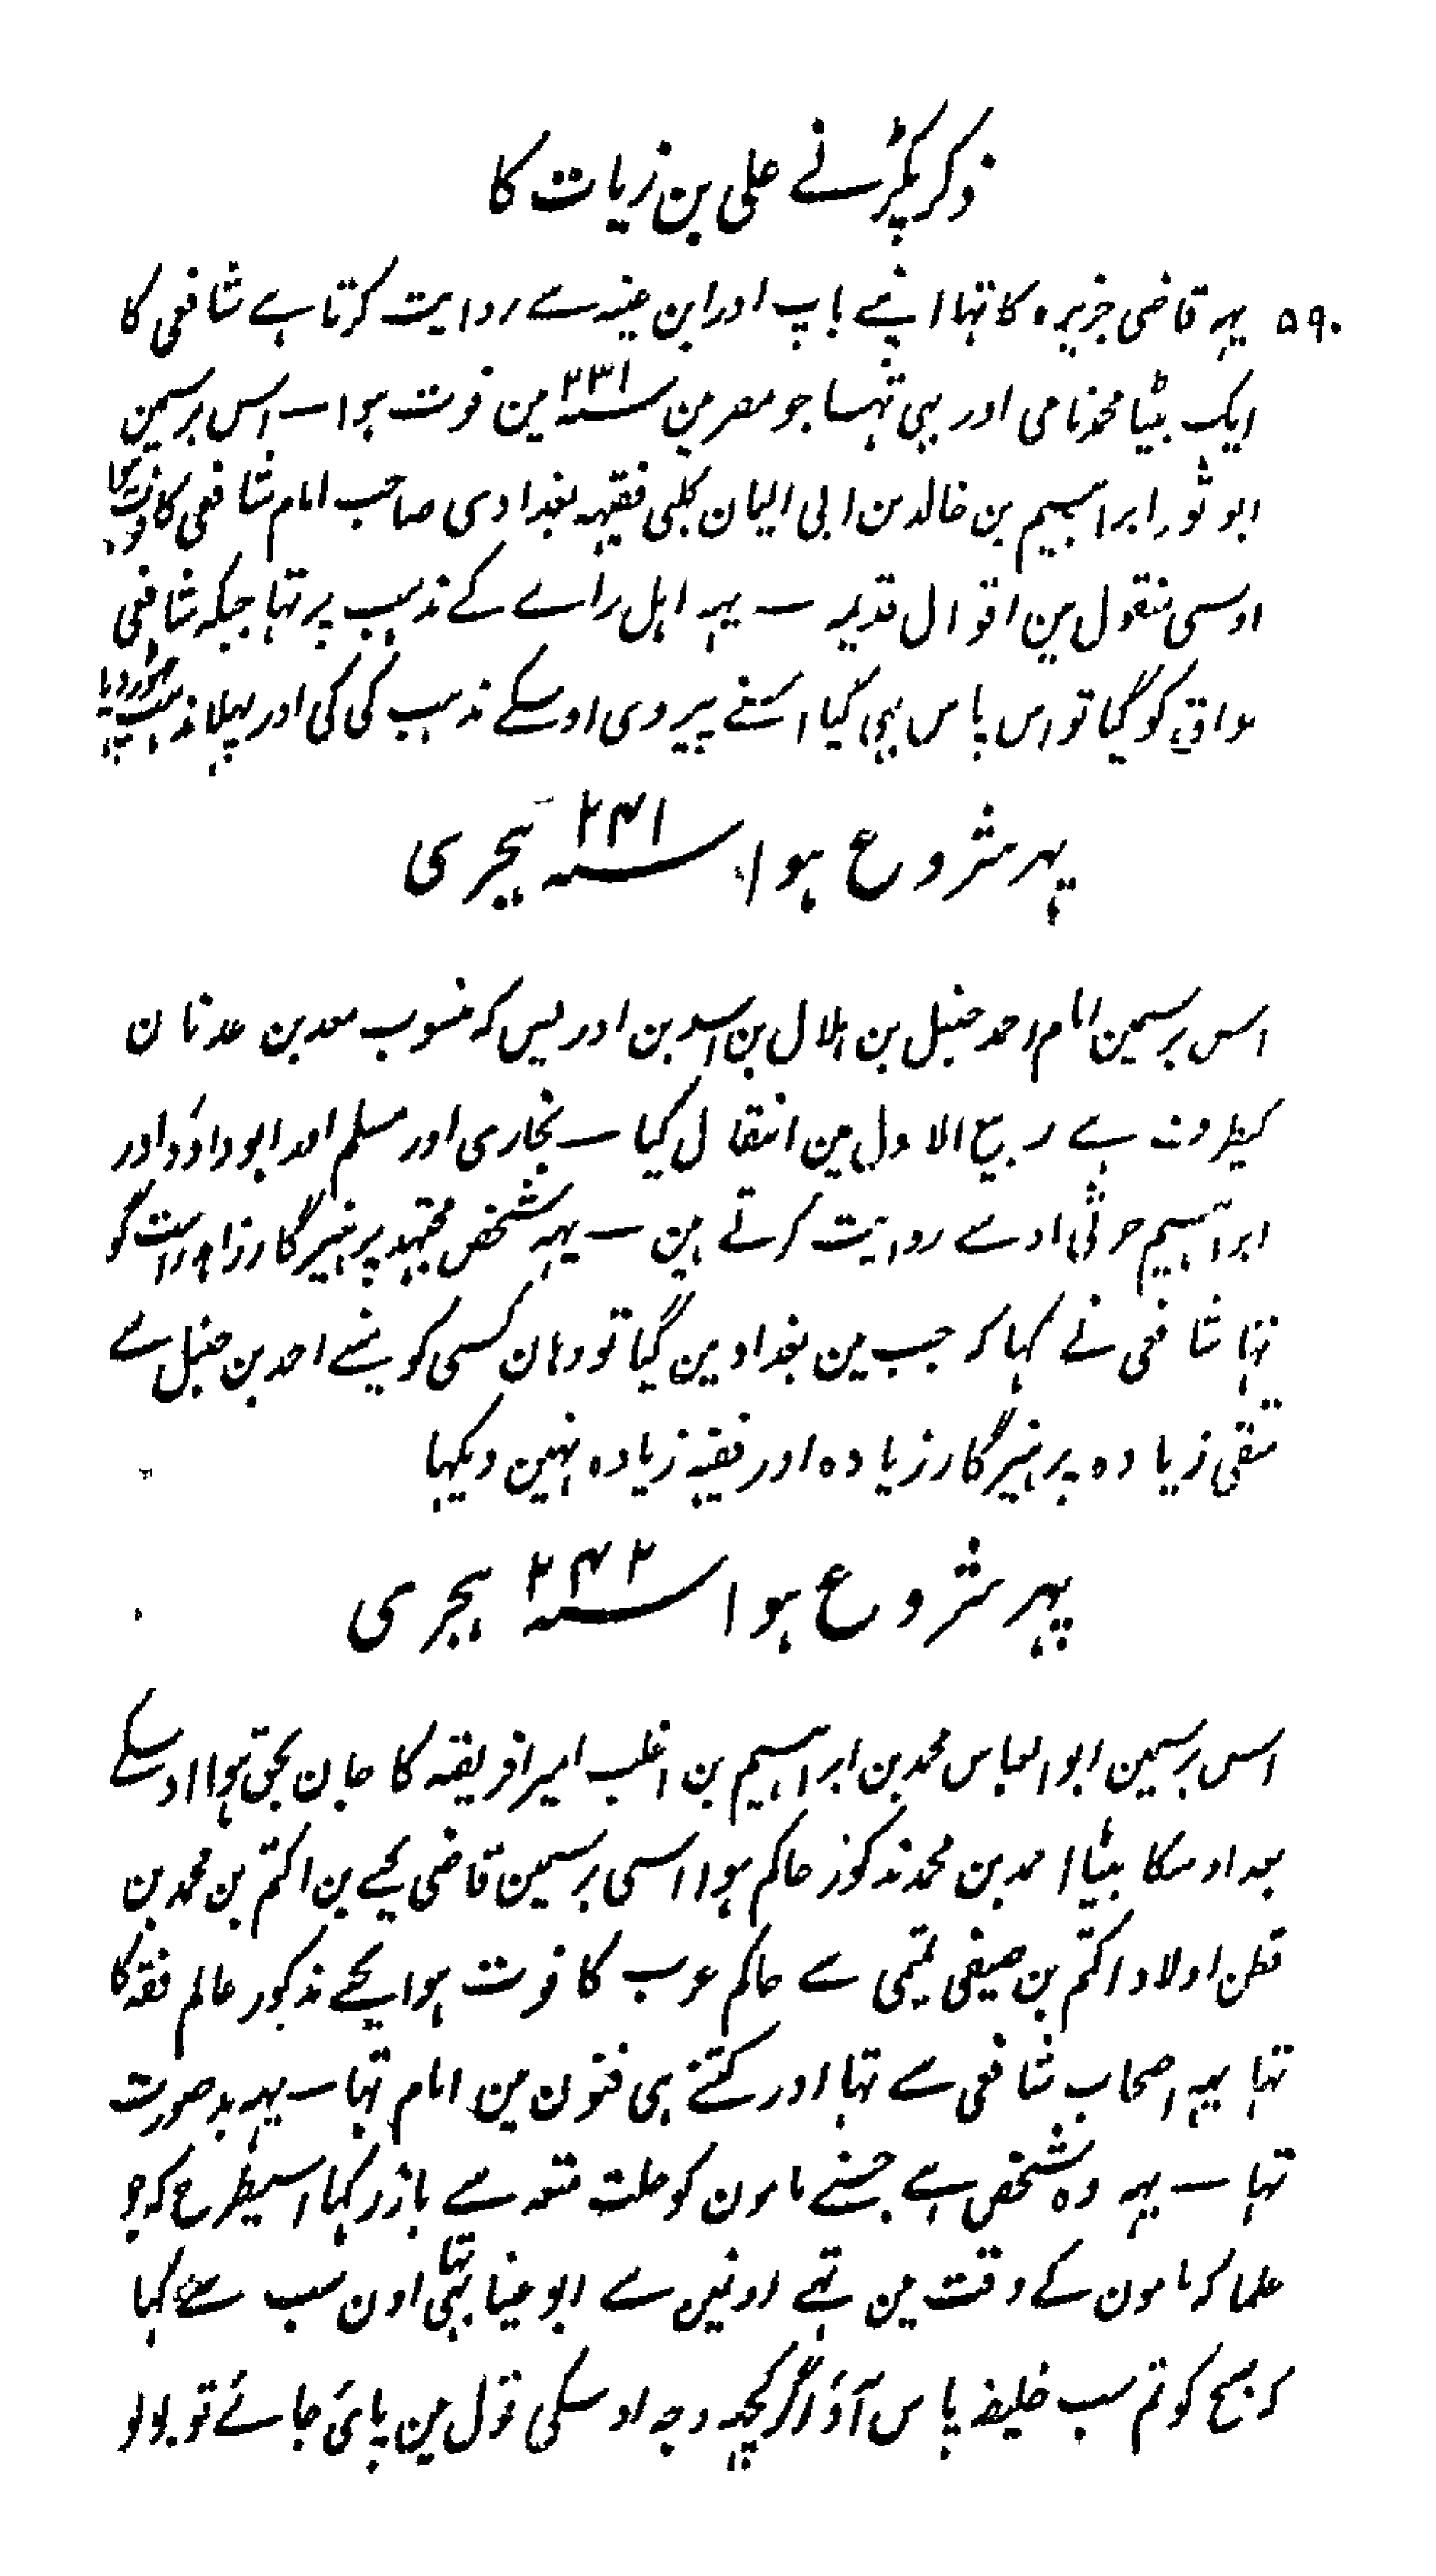 ذکر پکڑنے علی بن زیات کا
۵۹۰ یہہ قاضی جزیرہ کا تہا اپنے باپ اور ابن عینہ سے روایت کرتا ہے شافعی کا
ایک بیٹا محمد نامی اور بہی تہا جو مصر مین سنہ ۲۳۱ مین فوت ہوا ــ اس برسمین
ابو ثور ابراہیم بن خالد بن ابی الیمان کلبی فقیہہ بغدادی صاحب امام شافعی کا فوت ہوا
اوسی منقول ہین اقوال قدیمہ ــ یہہ اہل رائے کے مذہب پر تہا جبکہ شافعی
عراق کو گیا تو اس پاس بہی گیا اسنے پیروی اوسکے مذہب کی کی اور پہلا مذہب چہوڑ دیا
پہر شروع ہوا سنہ ۲۴۱ ہجری
اس برسمین امام احمد حنبل بن ہلال بن اسد بن ادریس کہ منسوب معد بن عدنان
کیطرف ہے ربیع الاول مین انتقال کیا ــ بخاری اور مسلم اور ابوداؤد اور
ابراہیم حربی اوسے روایت کرتے ہین ــ یہہ شخص مجتہد پرہیزگار زاہد راست گو
تہا شافعی نے کہا کہ جب مین بغداد مین گیا تو وہان کسی کو مینے احمد بن حنبل سے
متقی زیادہ پرہیزگار زیادہ اور فقیہ زیادہ نہین دیکہا
پہر شروع ہوا سنہ ۲۴۲ ہجری
اس برسمین ابو العباس محمد بن ابراہیم بن اغلب امیر افریقہ کا جان بحق ہوا اوسکے
بعد اوسکا بیٹا احمد بن محمد مذکور حاکم ہوا اسی برسمین قاضی یحیے بن اکثم بن محمد بن
قطن اولاد اکثم بن صیفی تمیمی سے حاکم عرب کا فوت ہوا یحیے مذکور عالم فقہ کا
تہا یہہ اصحاب شافعی سے تہا اور کتنے ہی فنون مین امام تہا ــ یہہ بدصورت
تہا ــ یہہ وہ شخص ہے جسنے مامون کو حلت متعہ سے باز رکہا اسیطرح کہ جو
علما کہ مامون کے وقت مین تہے اونہین سے ابو عینا بہی تہا اون سب سے کہا
کہ صبح کو تم سب خلیفہ پاس آؤ اگر کچہہ وجہ اوسکی قول مین پائی جائے تو بولو